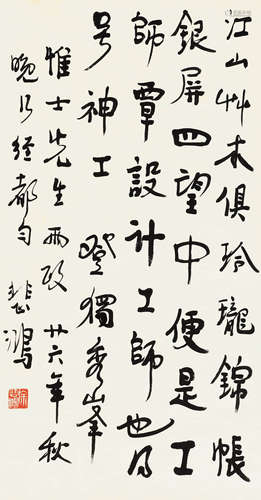 江山艸木俱玲瓏錦帳
銀屏四望中便是工
師覃設計工師也得
号神工 登獨秀山峯
惟士先生兩政 廿六年秋
晚乃經都匀 悲鴻